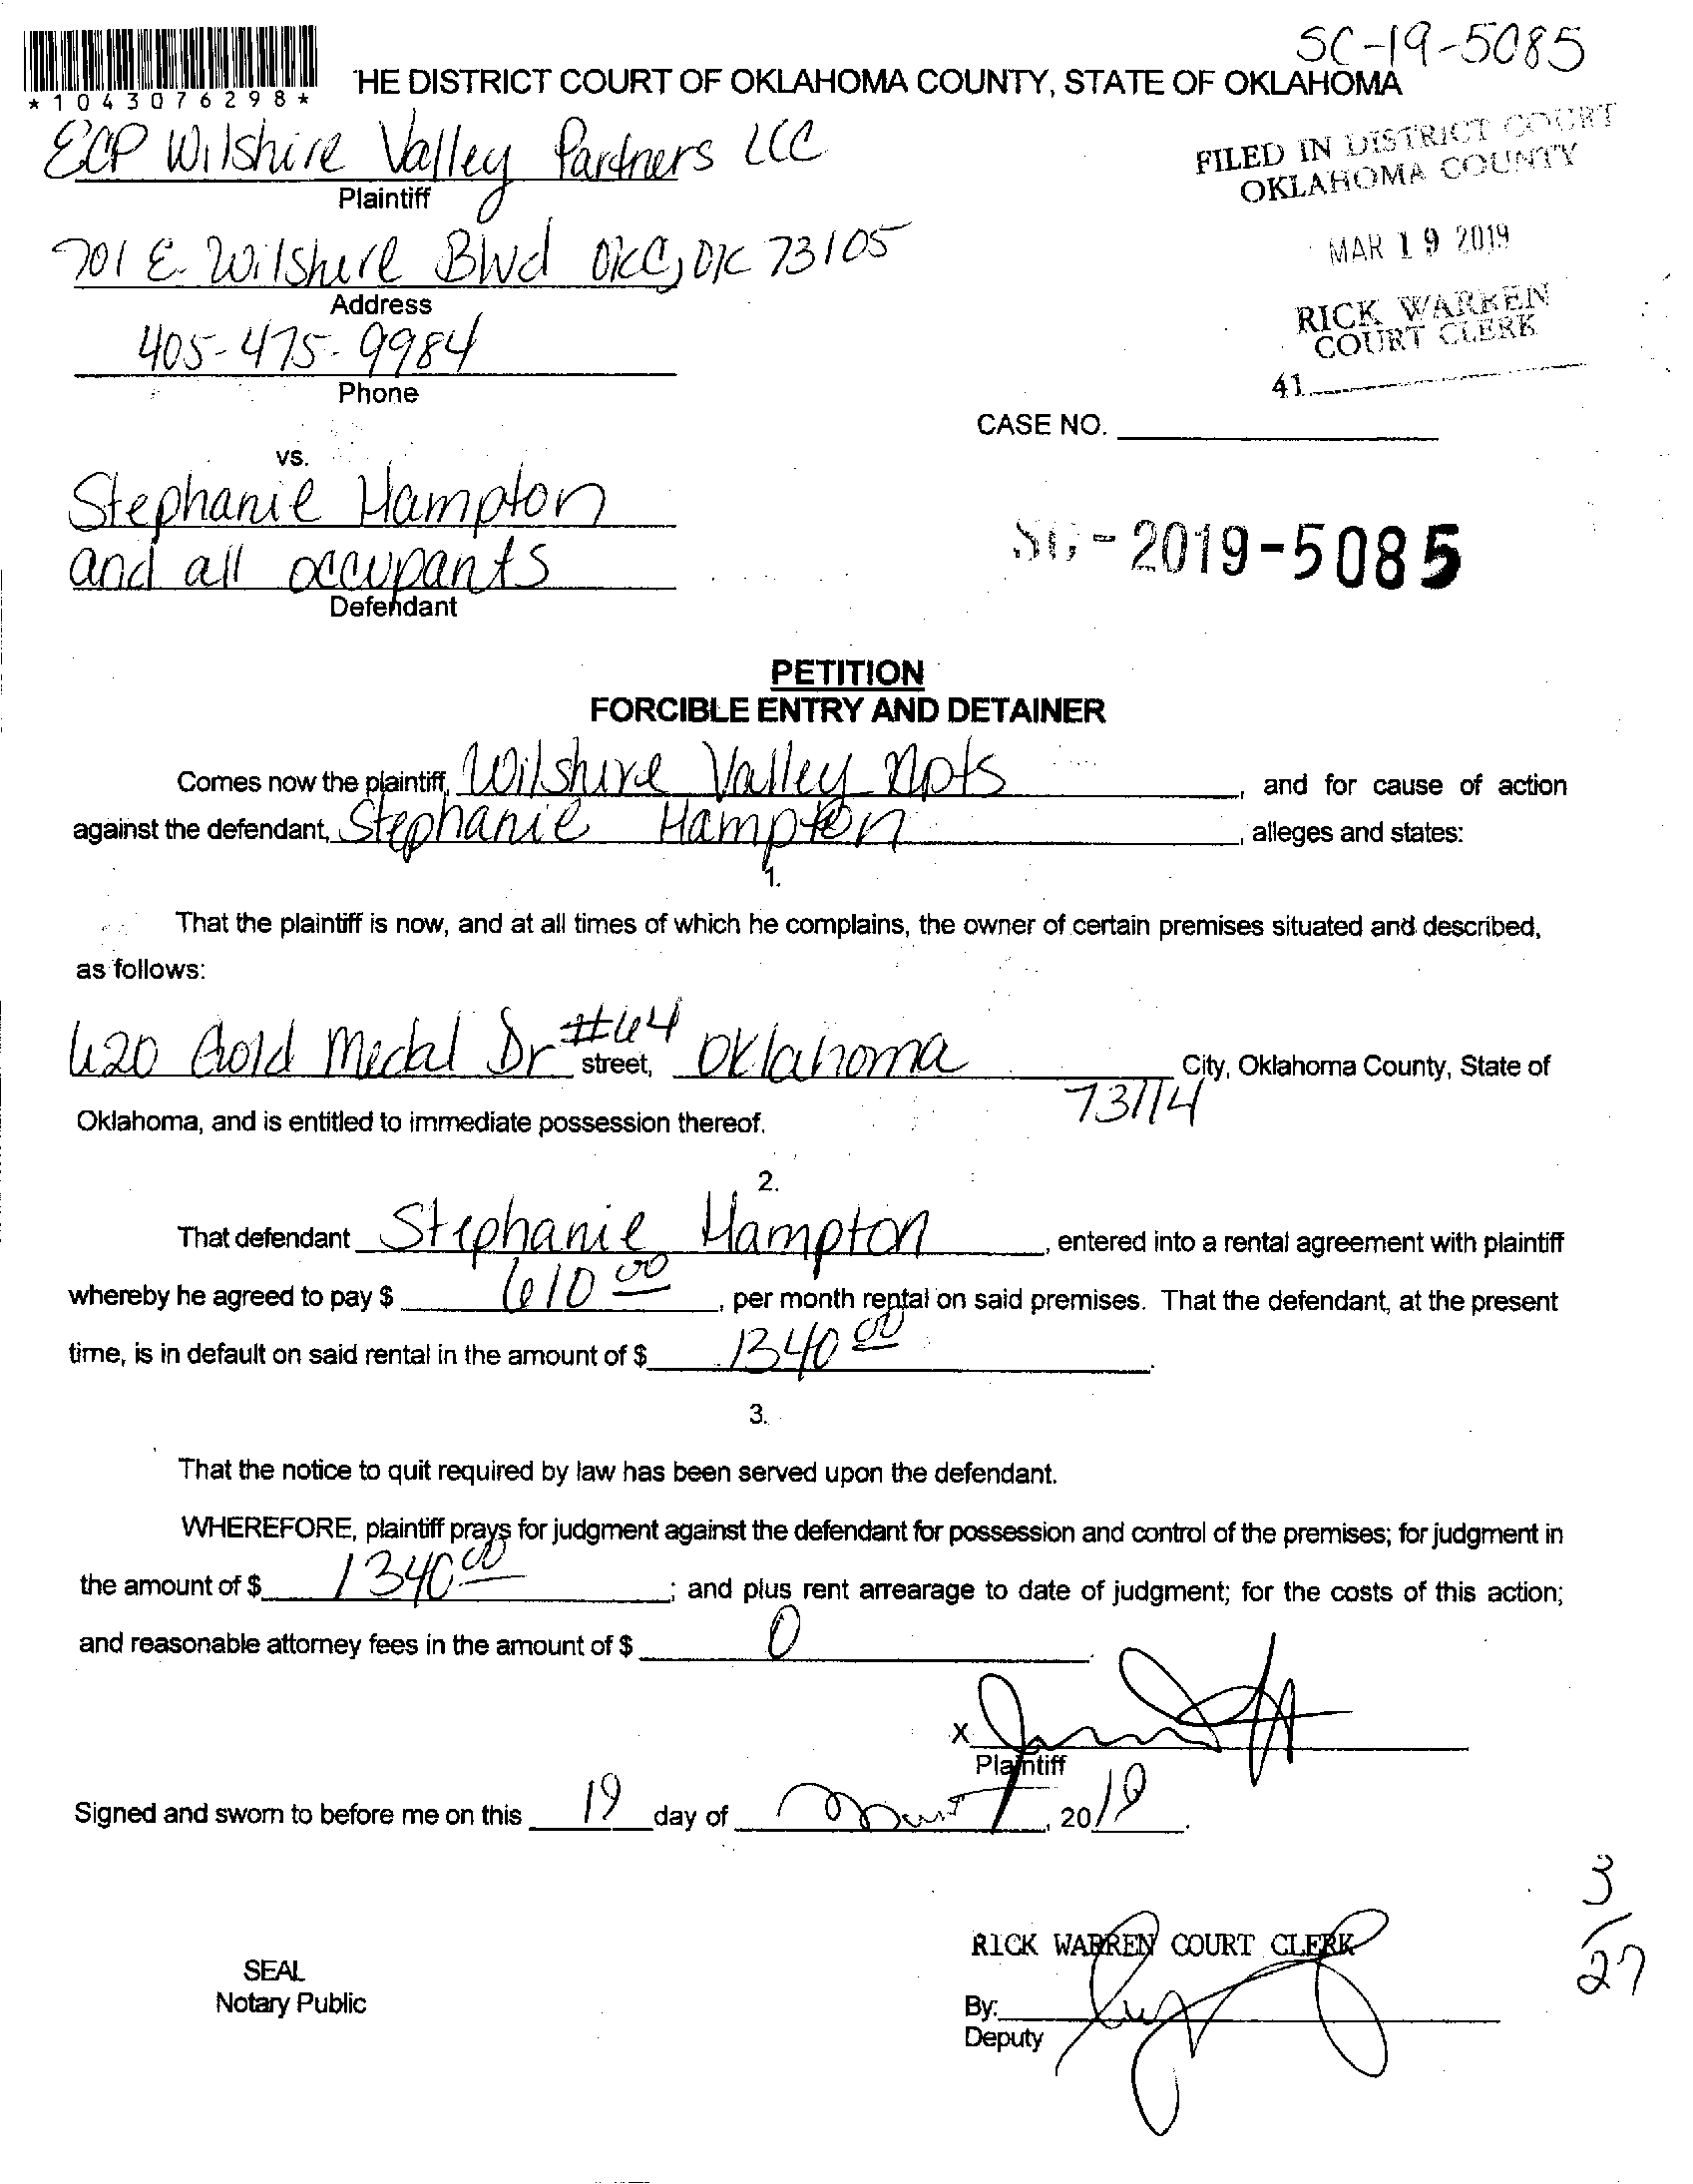 SC-19-5085
*1043076298*
HE DISTRICT COURT OF OKLAHOMA COUNTY, STATE OF OKLAHOMA
ECP Wilshire Valley Partners LLC
Plaintiff
FILED IN DISTRICT COURT
OKLAHOMA COUNTY
701 E. Wilshire Blvd OKC, OK 73105
Address
MAR 19 2019
405-475-9984
Phone
RICK WARREN
COURT CLERK
41
CASE NO.
vs.
Stephanie Hampton
and all occupants
Defendant
SC-2019-5085
PETITION
FORCIBLE ENTRY AND DETAINER
Comes now the plaintiff, Wilshire Valley Apts, and for cause of action
against the defendant, Stephanie Hampton, alleges and states:
1.
That the plaintiff is now, and at all times of which he complains, the owner of certain premises situated and described,
as follows:
620 Gold Medal Dr #64 street, Oklahoma City, Oklahoma County, State of
73114
Oklahoma, and is entitled to immediate possession thereof.
2.
That defendant Stephanie Hampton, entered into a rental agreement with plaintiff
whereby he agreed to pay $ 610 00, per month rental on said premises. That the defendant, at the present
time, is in default on said rental in the amount of $ 1340 00.
3.
That the notice to quit required by law has been served upon the defendant.
WHEREFORE, plaintiff prays for judgment against the defendant for possession and control of the premises; for judgment in
the amount of $ 1340 00; and plus rent arrearage to date of judgment; for the costs of this action;
and reasonable attorney fees in the amount of $ 0.
X
Plaintiff
Signed and sworn to before me on this 19 day of March, 2019.
3/27
RICK WARREN COURT CLERK
SEAL
Notary Public
By:
Deputy